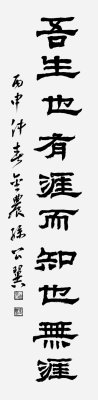 吾生也有涯而知也無涯
丙申仲春金農孫公翼